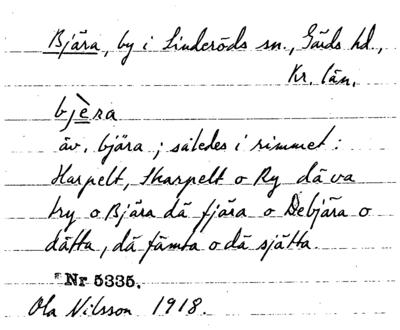 Bjära, by i Linderöds sn., Gärds hd.,
Kr. län.
bjèra
äv. bjära ; således i rimmet :
Harpelt, Skarpelt o Ry dä va
try o Bjära dä fjära o Debjära o
dätta, dä fämta o dä sjätta.
Nr 5335.
Ola Nilsson 1918.